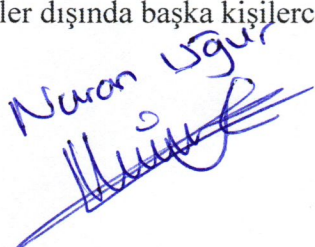 ler dışında başka kişilerc
Nuran Uğur